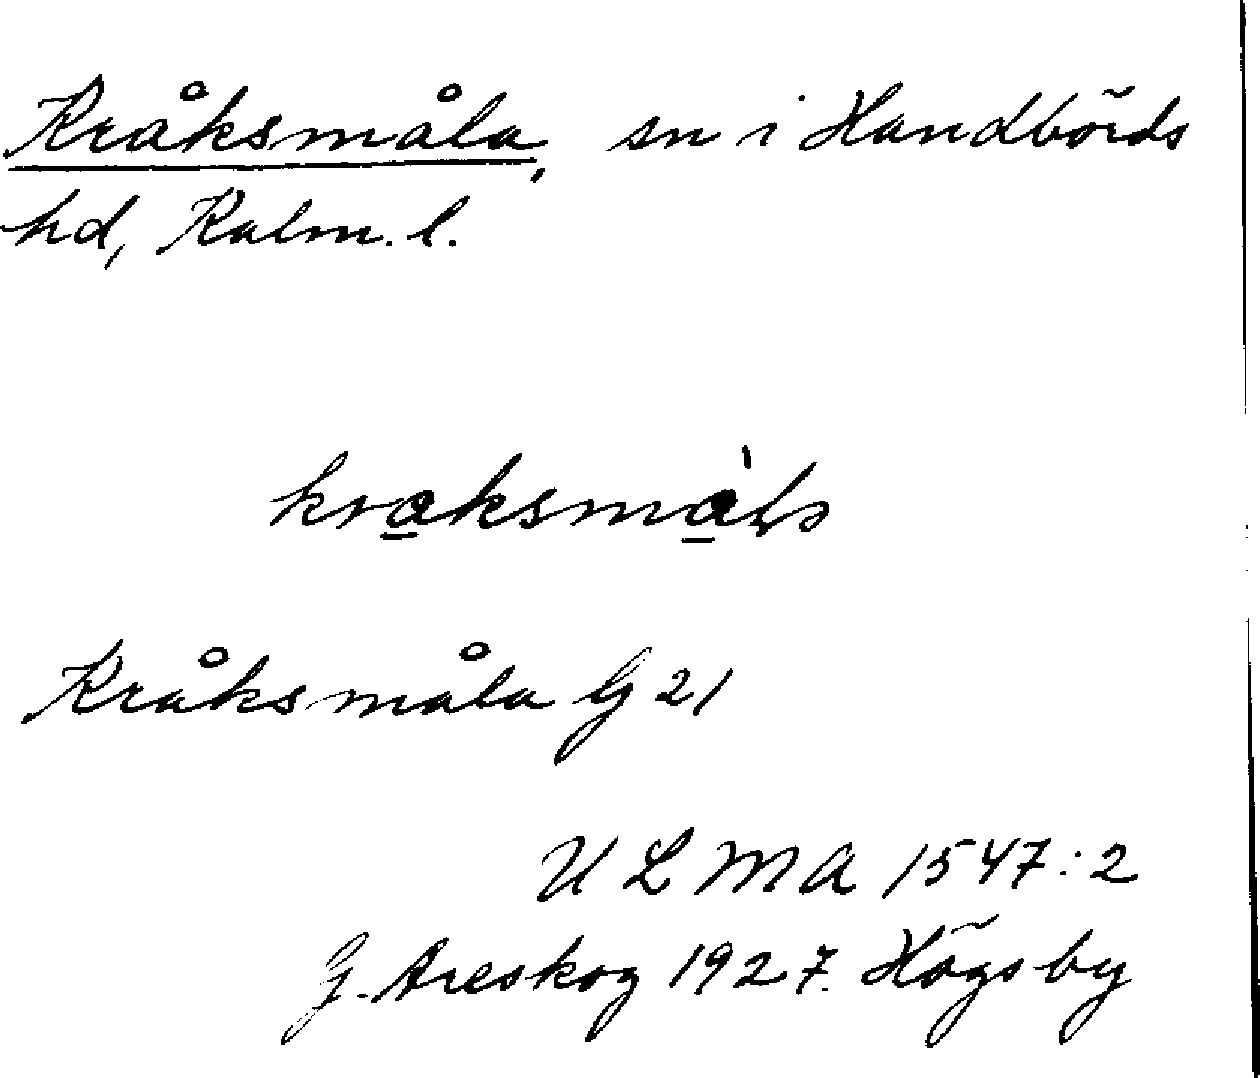 Kråksmåla, sn i Handbörds
hd, Kalm. l.
Kråksmåla G 21
ULMA 1547:2
G. Areskog 1927. Högsby